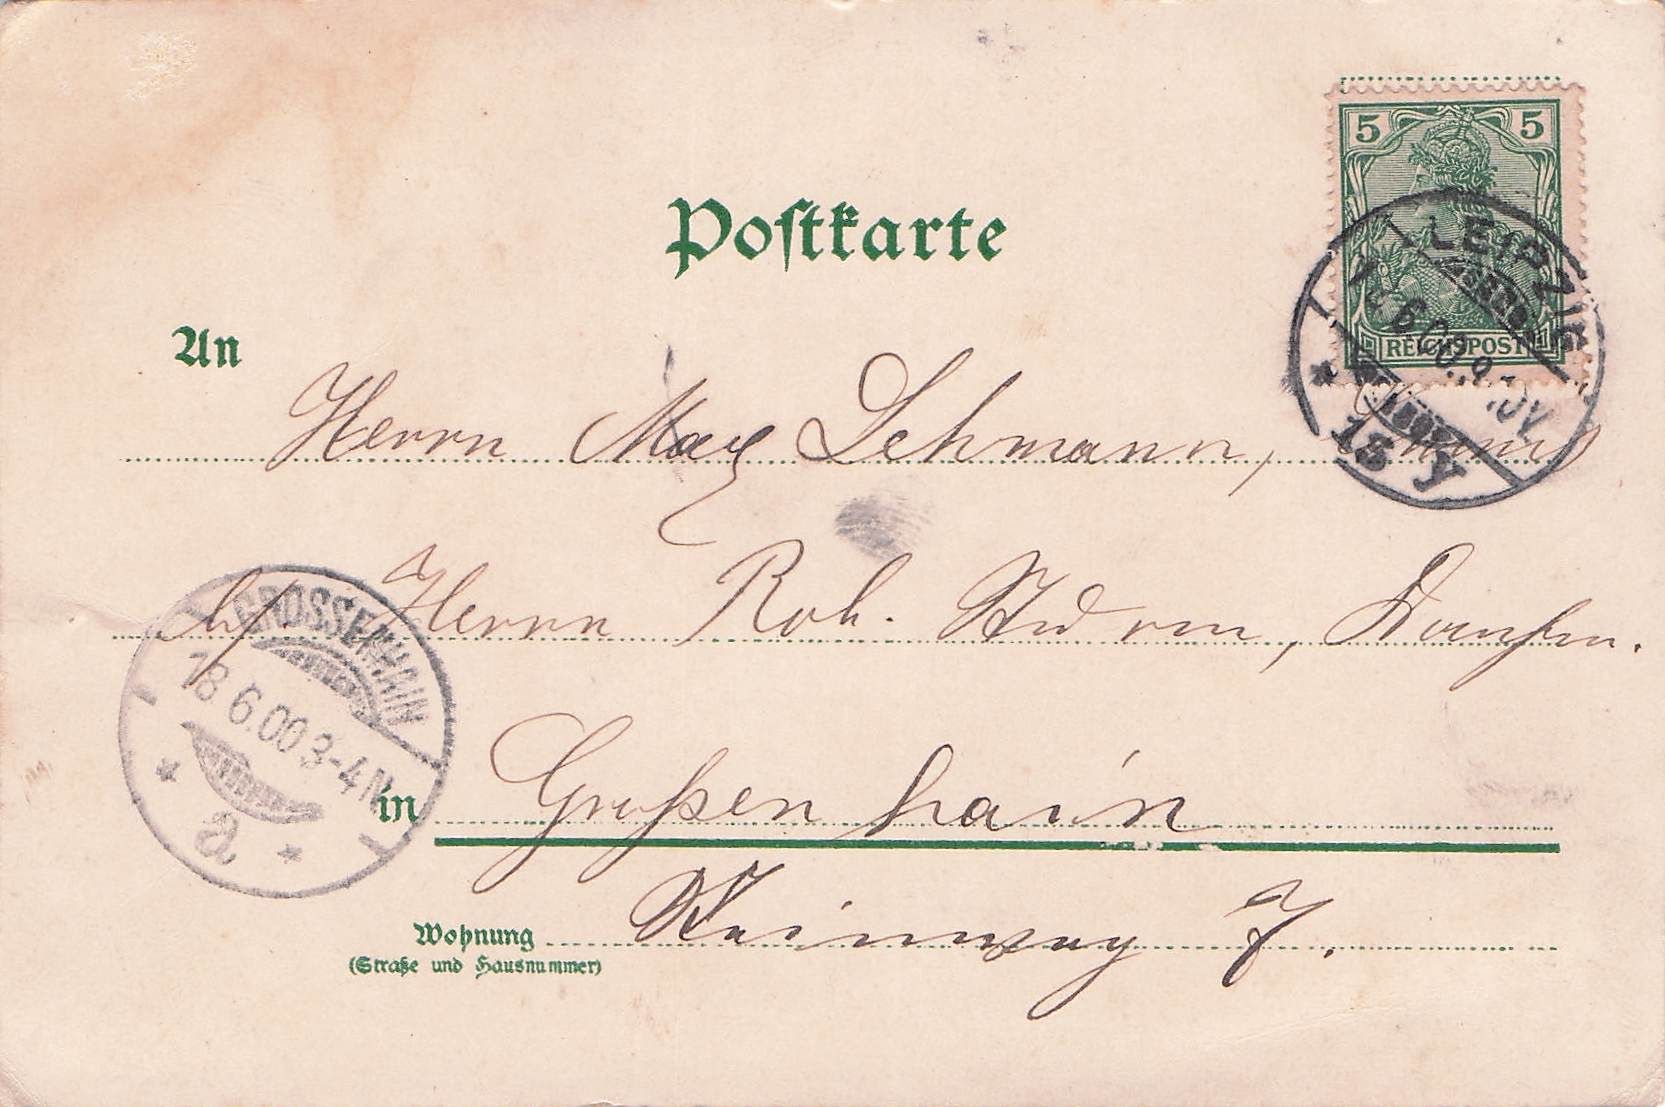 5 5
REICHSPOST
LEIPZIG
13 y
Postkarte
An
Herrn Max Lehmann,
b/ Herrn Rob.
GROSSENHAIN
18.6.00.3-4N.
a
in Großenhain
Wohnung
(Straße und Hausnummer)
7.